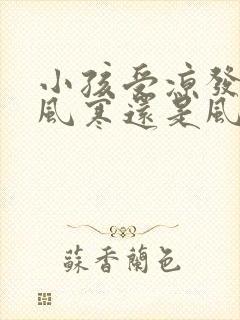 小孩受凉發
風寒還是風
蘇香蘭色